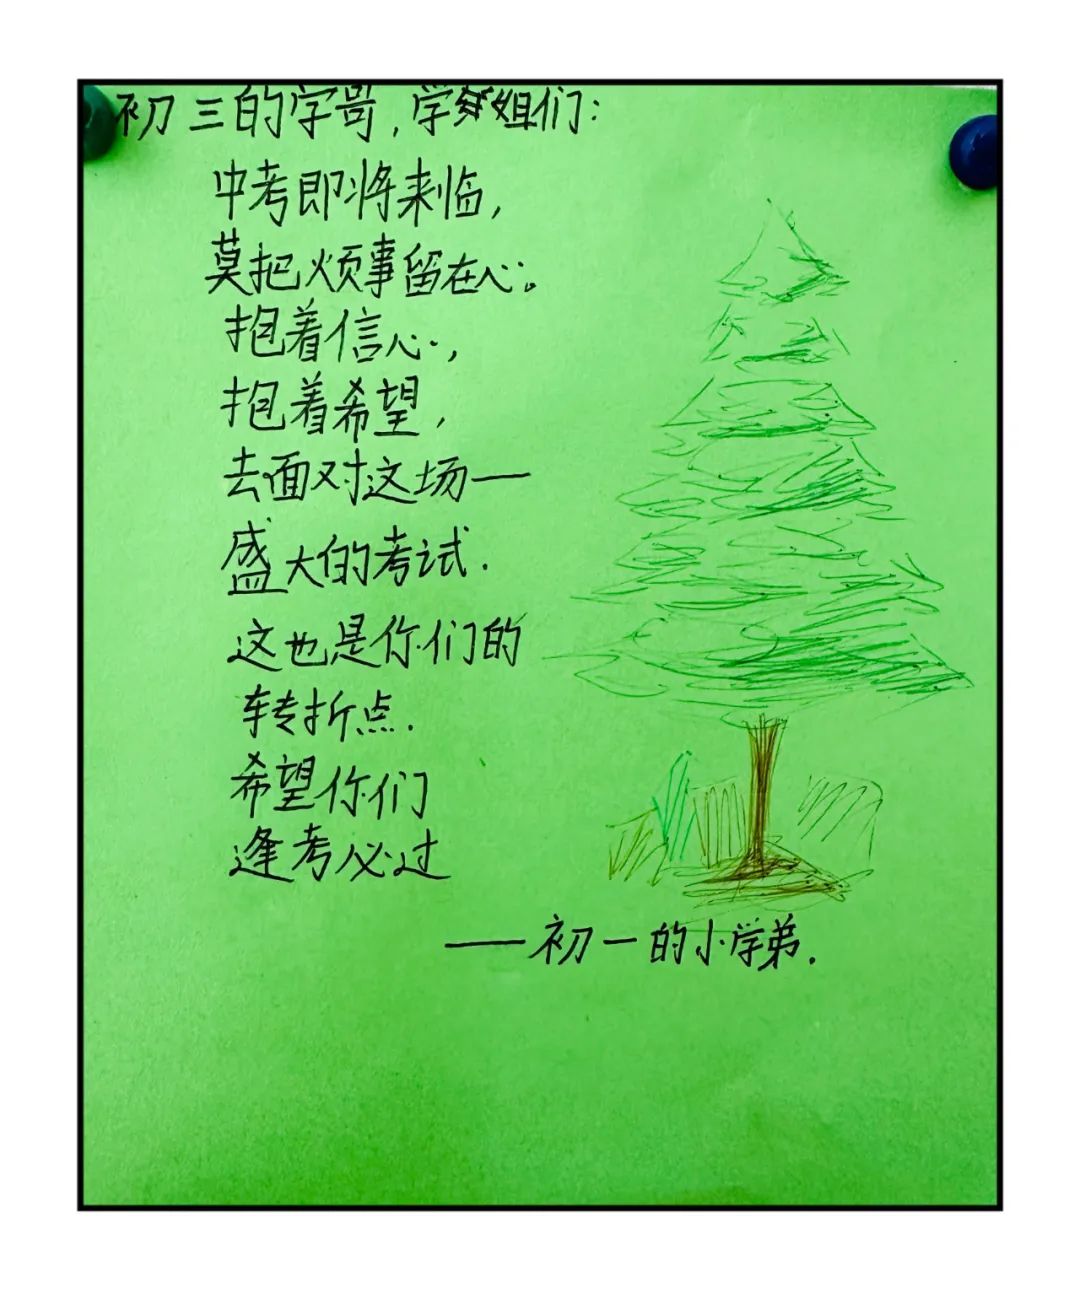 初三的学哥,学姐们:
中考即将来临,
莫把烦事留在心。
抱着信心,
抱着希望,
去面对这场一
盛大的考试.
这也是你们的
转折点.
希望你们
逢考必过
——初一的小学弟.